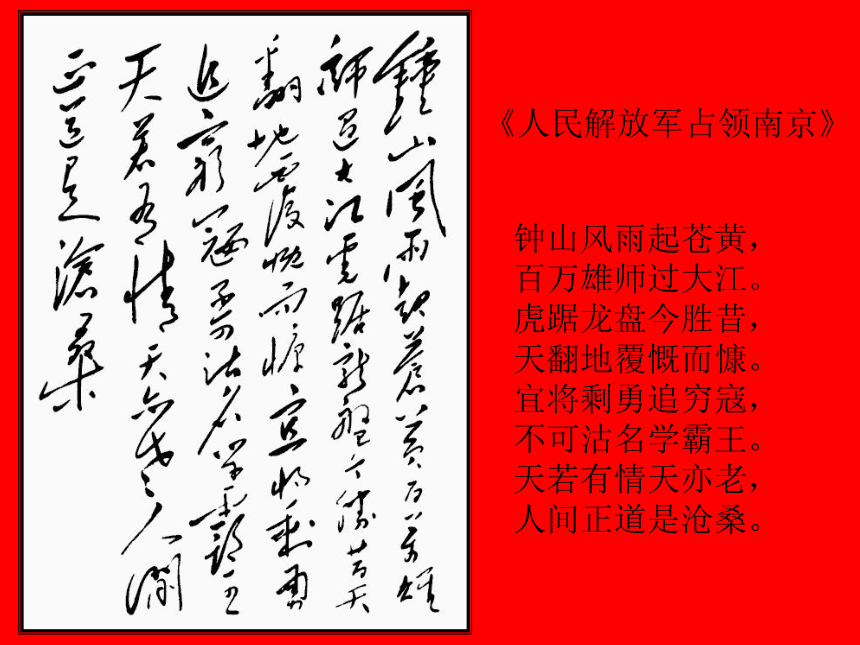 鐘山風雨起蒼黃百萬雄
師過大江虎踞龍盤今勝昔天
翻地覆慨而慷宜將剩勇
追窮寇不可沽名學霸王
天若有情天亦老人間
正道是滄桑
《人民解放军占领南京》
钟山风雨起苍黄，
百万雄师过大江。
虎踞龙盘今胜昔，
天翻地覆慨而慷。
宜将剩勇追穷寇，
不可沽名学霸王。
天若有情天亦老，
人间正道是沧桑。